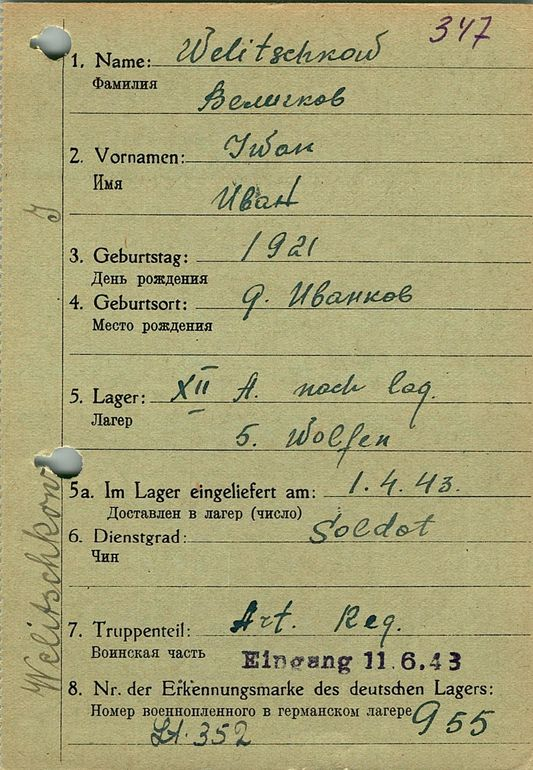 347
1. Name: Welitschkow
Фамилия
Величков
2. Vornamen: Iwan
Имя
Иван
3. Geburtstag: 1921
День рождения
4. Geburtsort: д. Иванков
Место рождения
5. Lager: XII A. nach lag.
Лагерь
S. Wolfen
5a. Im Lager eingeliefert am: 1.4.43.
Доставлен в лагерь (число)
6. Dienstgrad: Soldat
Чин
7. Truppenteil: Art. Reg.
Воинская часть
Eingang 11.6.43
8. Nr. der Erkennungsmarke des deutschen Lagers:
Номер военнопленного в германском лагере 955
352
Welitschkow I